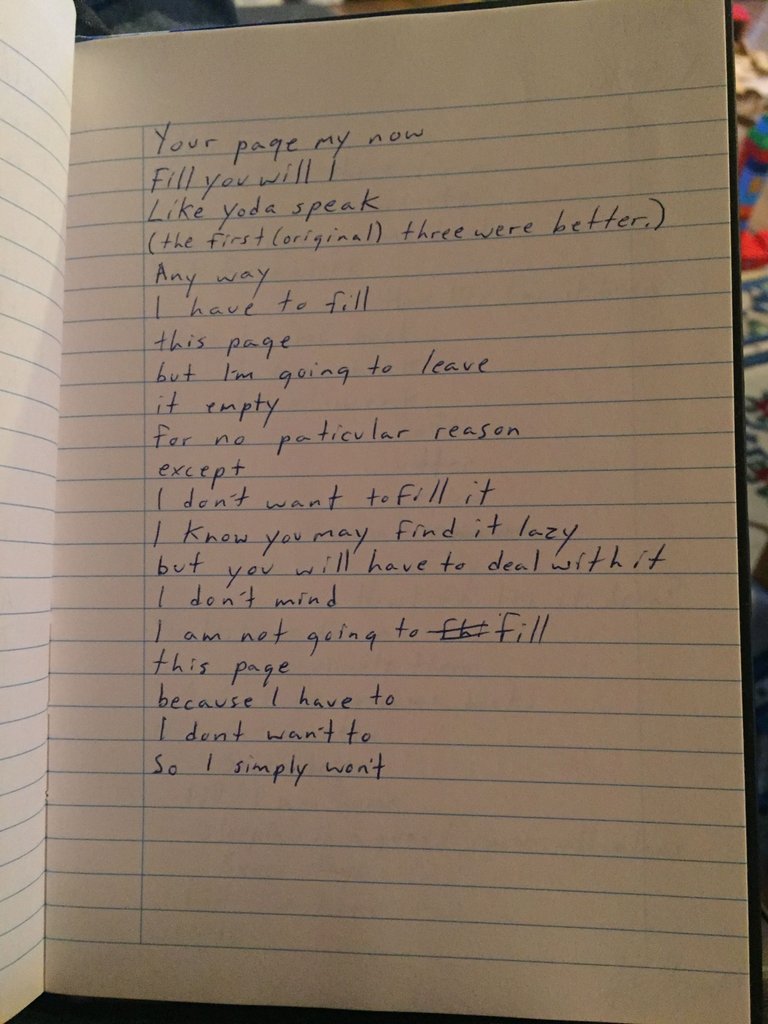 Your page my now
Fill you will I
Like Yoda speak
(the first (original) three were better.)
Any way
I have to fill
this page
but I'm going to leave
it empty
for no paticular reason
except
I don't want to fill it
I know you may find it lazy
but you will have to deal with it
I don't mind
I am not going to fill
this page
because I have to
I dont want to
So I simply won't